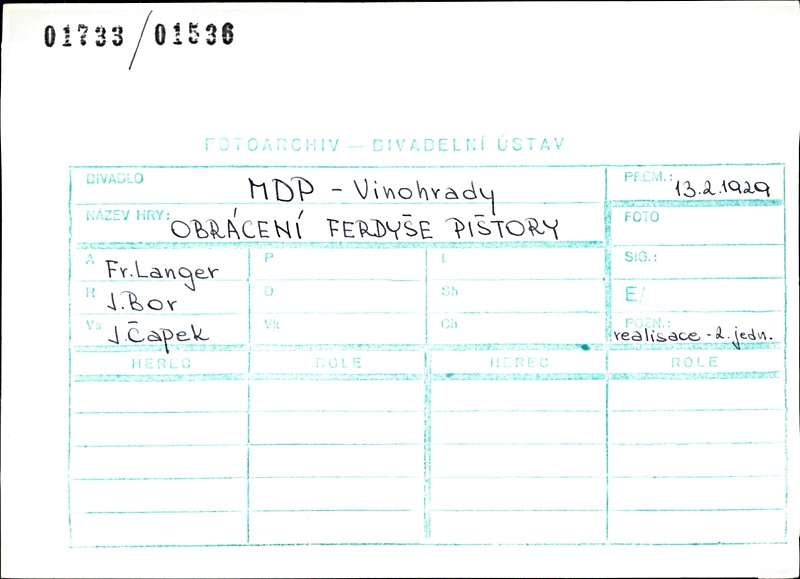 01733/01536
FOTOARCHIV — DIVADELNÍ ÚSTAV
DIVADLO MDP - Vinohrady
PREM.: 13.2.1929
NÁZEV HRY: OBRÁCENÍ FERDYŠE PIŠTORY
FOTO
A Fr. Langer P L
SIG.:
R J. Bor O Sh
E/
Vs J. Čapek Vk Ch
POZN.: realisace - 2. jedn.
HEREC ROLE HEREC ROLE